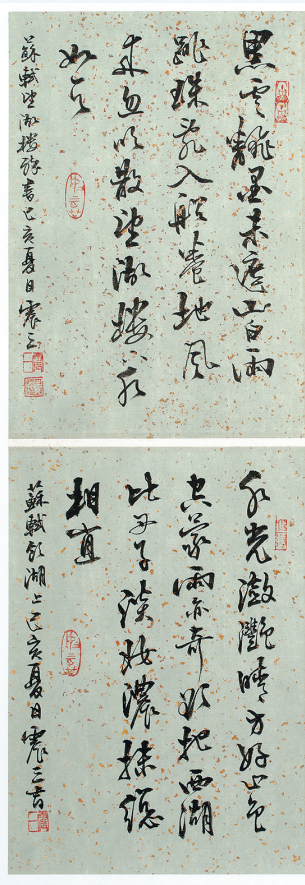 黑雲翻墨未遮山白雨
跳珠亂入船卷地風
來忽吹散望湖樓下水
如天
蘇軾望湖樓醉書己亥夏日震
水光瀲灩晴方好山色
空蒙雨亦奇欲把西湖
比西子淡妝濃抹總
相宜
蘇軾飲湖上己亥夏日震書